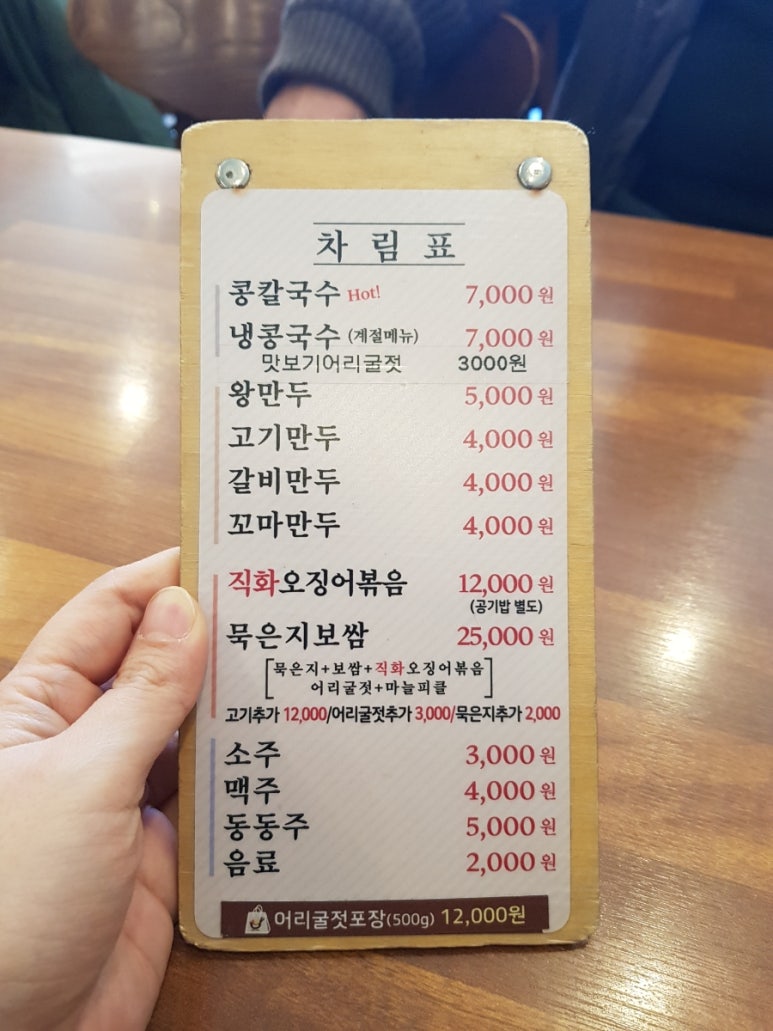 차림표
콩칼국수 Hot! 7,000원
냉콩국수 (계절메뉴) 7,000원
맛보기어리굴젓 3000원
왕만두 5,000원
고기만두 4,000원
갈비만두 4,000원
꼬마만두 4,000원
직화오징어볶음 12,000원
(공기밥 별도)
묵은지보쌈 25,000원
[묵은지+보쌈+직화오징어볶음
어리굴젓+마늘피클]
고기추가 12,000/어리굴젓추가 3,000/묵은지추가 2,000
소주 3,000원
맥주 4,000원
동동주 5,000원
음료 2,000원
어리굴젓포장(500g) 12,000원